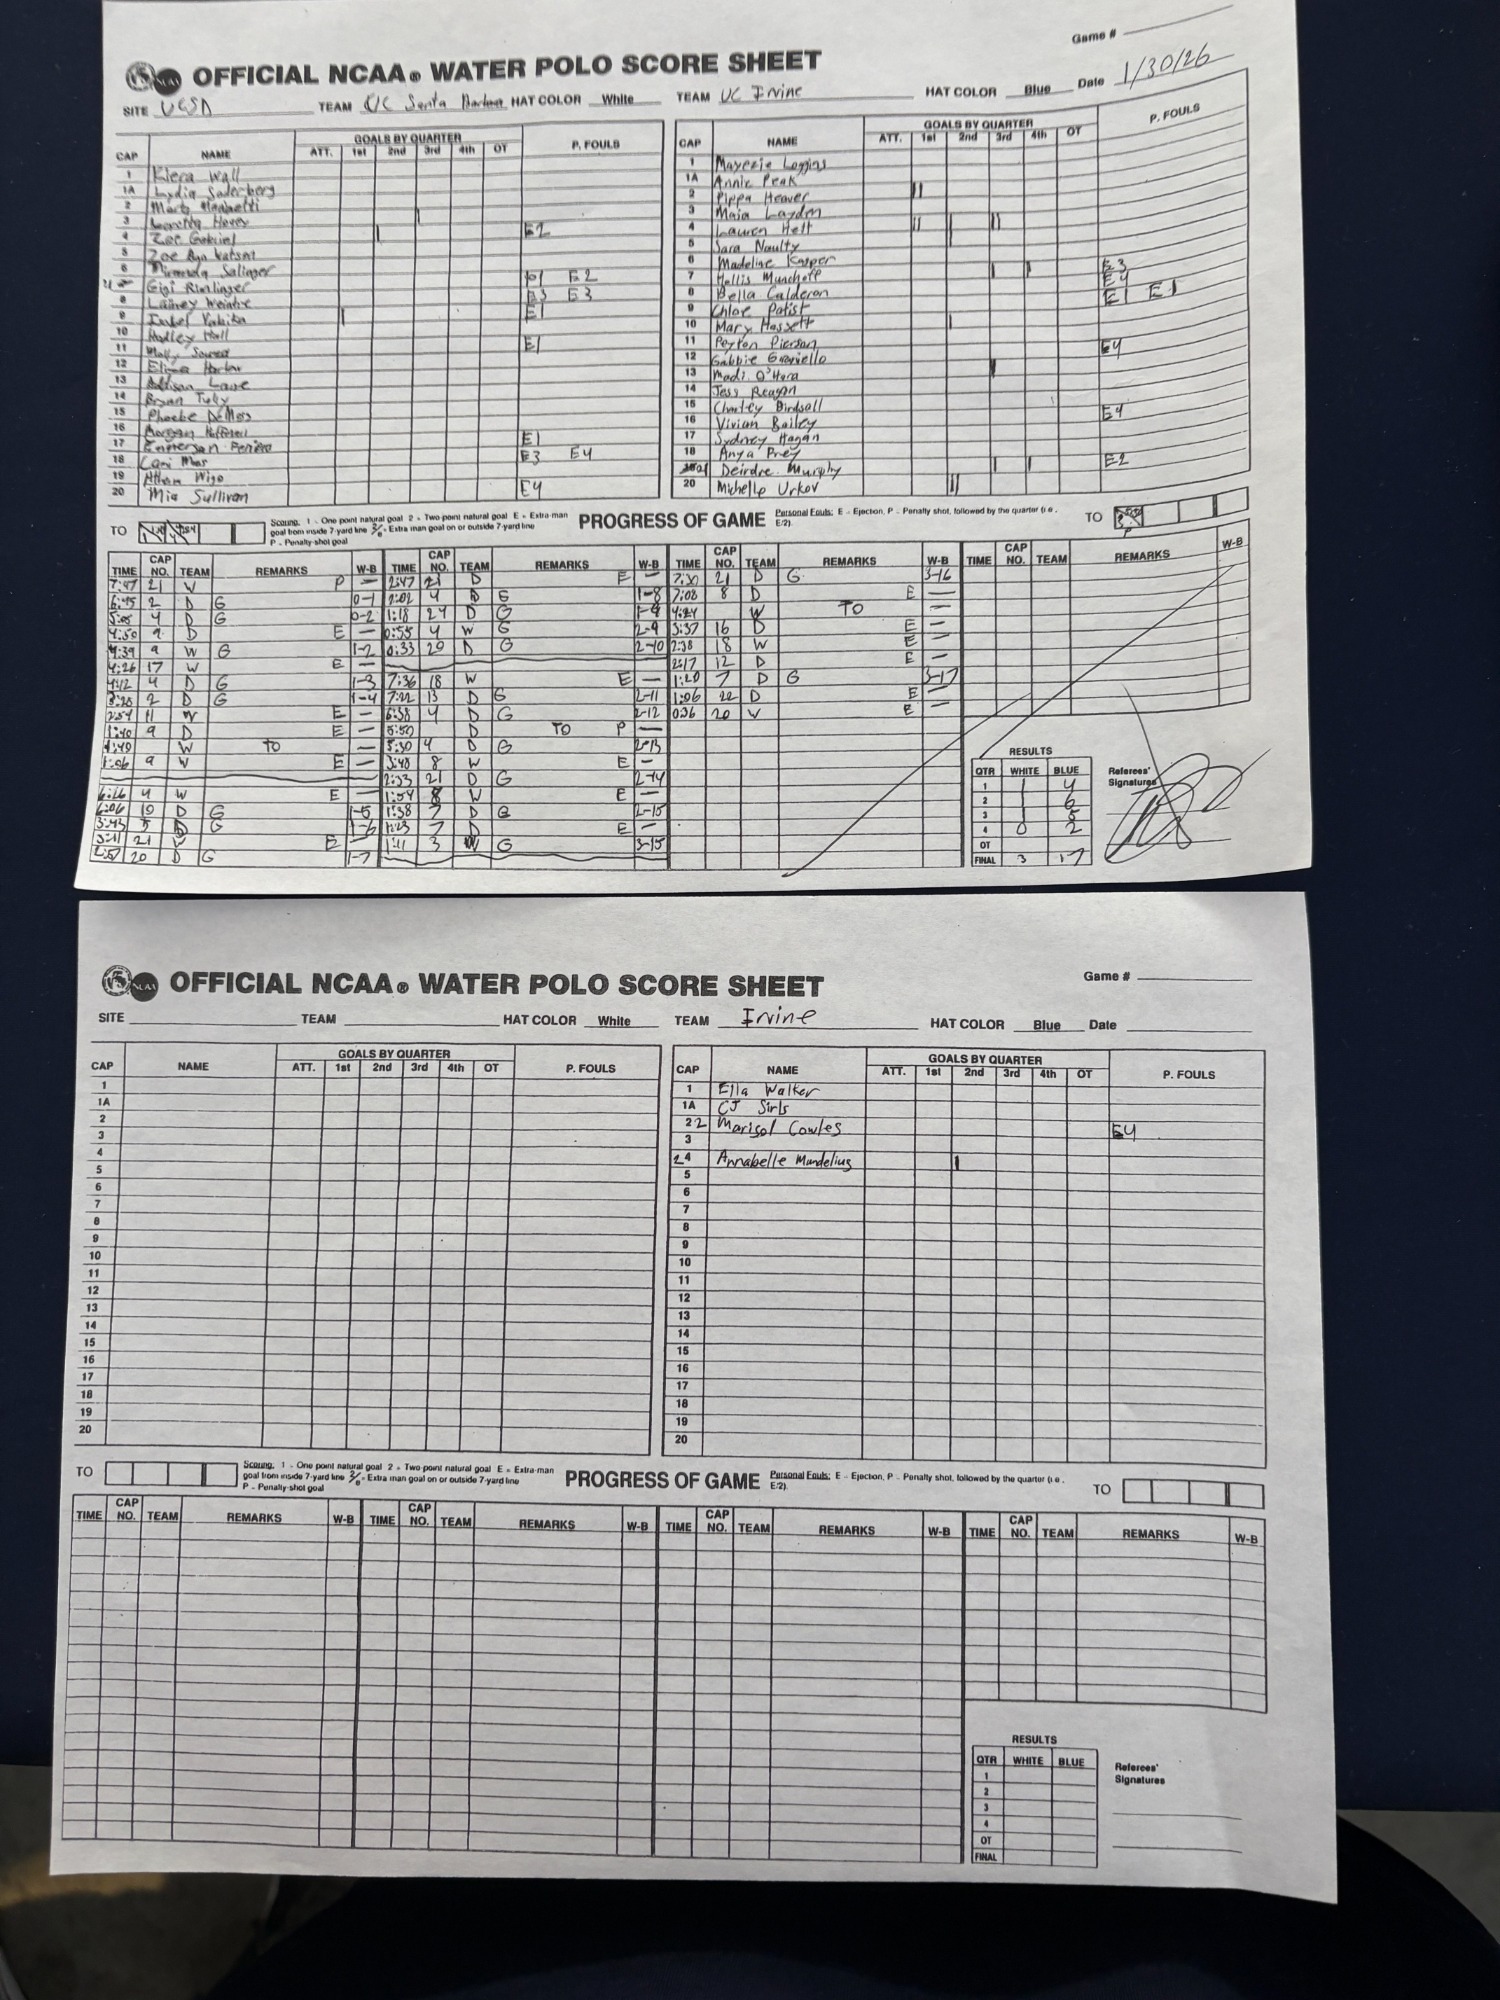 Game #
OFFICIAL NCAA® WATER POLO SCORE SHEET
SITE UCSD TEAM UC Santa Barbara HAT COLOR White TEAM UC Irvine HAT COLOR Blue Date 1/30/26
CAP NAME ATT. GOALS BY QUARTER 1st 2nd 3rd 4th OT P. FOULS
CAP NAME ATT. GOALS BY QUARTER 1st 2nd 3rd 4th OT P. FOULS
1 Kiera Wall
1A Lydia Soderberg
2
3
4 Zoe E2
5 Zoe
6 Salinger P1 E2
Gigi Rimlinger E3 E3
8 Lainey E1
9
10 Hadley Hall E1
11
12
13 Addison
14 Bryan
15 Phoebe
16 Morgan E1
17 Emerson E3 E4
18
19 Wigo E4
20 Mia Sullivan
1 Loggins
1A Annie Peak
2 Pippa Heaver
3 Maia Laydon
4 Lauren Hett
5 Sara Naulty
6 Madeline Kasper E3
7 Hollis Munchoff E4
8 Bella Calderon E1 E1
9 Chloe Patist
10 Mary Hassett
11 Peyton Pierson E4
12 Gabbie
13 Madi O'Hara
14 Jess Reagan
15 Charley Birdsell E4
16 Vivian Bailey
17 Sydney Hagan
18 Anya Prey E2
21 Deirdre Murphy
20 Michelle Urkov
TO
Scoring: 1 - One point natural goal 2 = Two point natural goal E = Extra-man
goal from inside 7-yard line - Extra man goal on or outside 7-yard line
P - Penalty-shot goal
PROGRESS OF GAME
Personal Fouls: E - Ejection, P - Penalty shot, followed by the quarter (i.e.
E/2).
TO
TIME CAP NO. TEAM REMARKS W-B TIME CAP NO. TEAM REMARKS W-B TIME CAP NO. TEAM REMARKS W-B TIME CAP NO. TEAM REMARKS W-B
7:47 21 W P —
6:45 2 D G 0-1
5:05 4 D G 0-2
4:50 9 D E —
4:39 9 W G 1-2
4:26 17 W E —
4:12 4 D G 1-3
3:28 2 D G 1-4
2:54 11 W E —
1:40 9 D E —
1:40 W TO —
1:06 9 W E —
6:26 4 W E —
6:06 10 D G 1-5
3:43 5 D G 1-6
3:11 21 W E —
20 D G 1-7
2:47 21 D E —
2:02 4 D G 1-8
1:18 24 D G 1-9
0:55 4 W G 2-9
0:33 20 D G 2-10
7:36 18 W E —
7:22 13 D G 2-11
6:38 4 D G 2-12
5:50 D TO P —
5:30 4 D G 2-13
3:48 8 W E —
2:33 21 D G 2-14
1:54 8 W E —
1:38 7 D G 2-15
1:23 7 D E —
1:11 3 W G 3-15
7:30 21 D G 3-16
7:08 8 D E —
4:24 W TO —
3:37 16 D E —
2:38 18 W E —
2:17 12 D E —
1:20 7 D G 3-17
1:06 22 D E —
0:36 20 W E —
RESULTS
QTR WHITE BLUE
1 1 4
2 1 6
3 1 5
4 0 2
OT
FINAL 3 17
Referees'
Signatures
OFFICIAL NCAA® WATER POLO SCORE SHEET
Game #
SITE TEAM HAT COLOR White TEAM Irvine HAT COLOR Blue Date
CAP NAME ATT. GOALS BY QUARTER 1st 2nd 3rd 4th OT P. FOULS
CAP NAME ATT. GOALS BY QUARTER 1st 2nd 3rd 4th OT P. FOULS
1
1A
2
3
4
5
6
7
8
9
10
11
12
13
14
15
16
17
18
19
20
1 Ella Walker
1A CJ Sirls
22 Marisol Cowles E4
3
24 Annabelle Mundelius
5
6
7
8
9
10
11
12
13
14
15
16
17
18
19
20
TO
Scoring: 1 - One point natural goal 2 = Two point natural goal E = Extra-man
goal from inside 7-yard line - Extra man goal on or outside 7-yard line
P - Penalty-shot goal
PROGRESS OF GAME
Personal Fouls: E - Ejection, P - Penalty shot, followed by the quarter (i.e.
E/2).
TO
TIME CAP NO. TEAM REMARKS W-B TIME CAP NO. TEAM REMARKS W-B TIME CAP NO. TEAM REMARKS W-B TIME CAP NO. TEAM REMARKS W-B
RESULTS
QTR WHITE BLUE
1
2
3
4
OT
FINAL
Referees'
Signatures